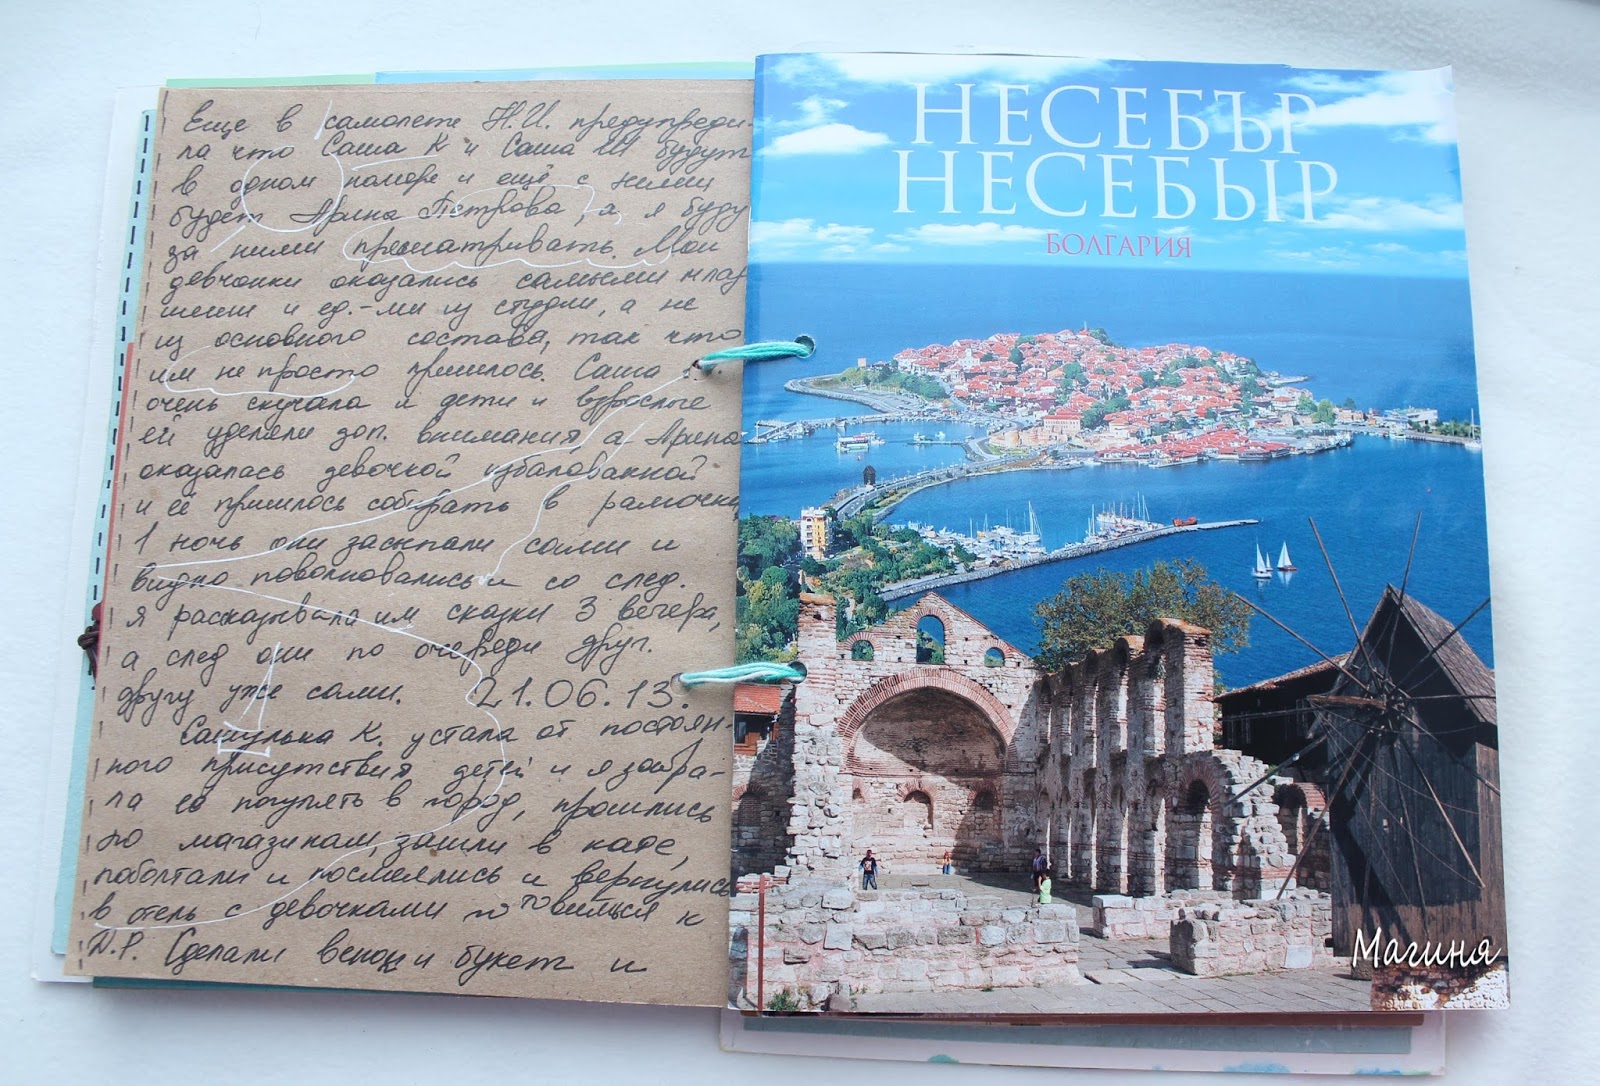 Еще в самолете Н.И. предупреди-
ла что Саша К и Саша Ш будут
в одном номере и ещё с ними
будет Арина Петрова, а я буду
за ними присматривать. Мои
девчонки оказались самыми млад
шими и ед.-ми из студии, а не
из основного состава, так что
им не просто пришлось. Саша
очень скучала и дети и взрослые
ей уделяли доп. внимания, а Арина
оказалась девочкой избалованной
и её пришлось собирать в рамочки,
1 ночь они засыпали сами и
видно поволновались и со след.
я рассказывала им сказки 3 вечера,
а след они по очереди друг.
другу уже сами. 21.06.13.
Сашулька К. устала от постоян-
ного присутствия детей и я забра-
ла её погулять в город, прошлись
по магазинам, зашли в кафе,
поболтали и посмеялись и вернулись
в отель с девочками готовиться к
Д.Р. Сделали венок и букет и
НЕСЕБЪР
НЕСЕБЫР
БОЛГАРИЯ
Магиня